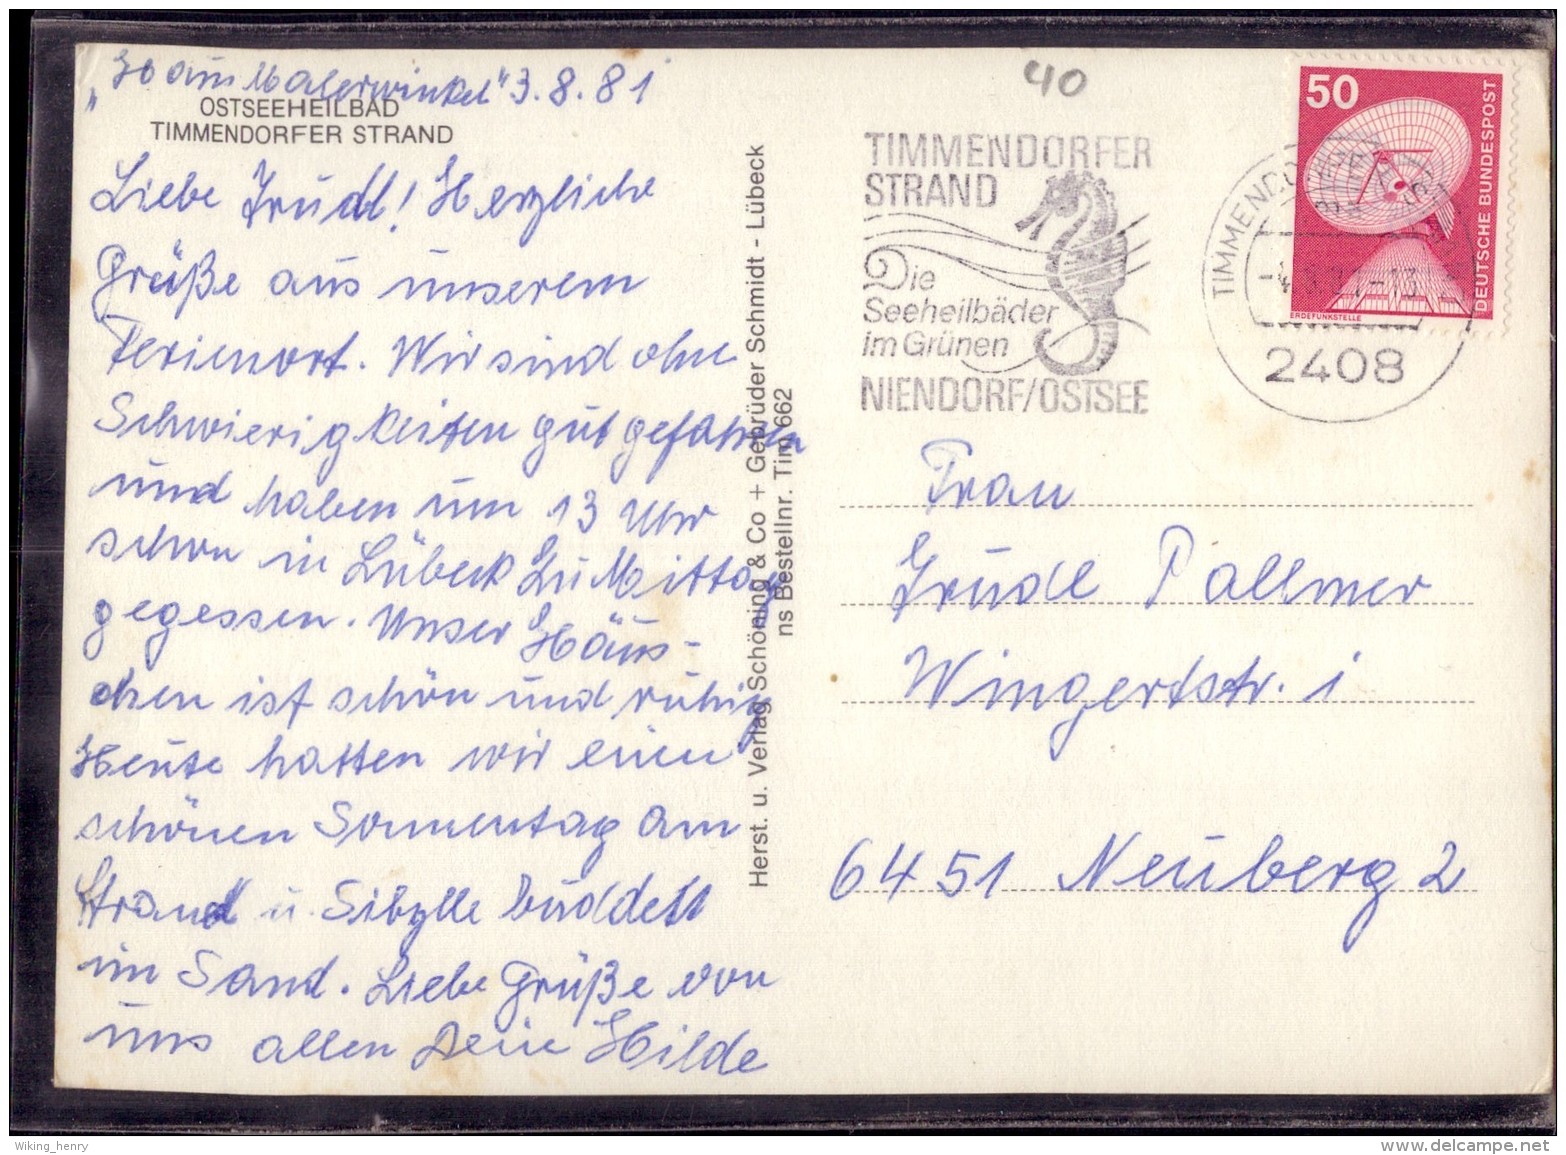 "Malerwinkel" 3.8.81
OSTSEEHEILBAD
TIMMENDORFER STRAND
Liebe Trudl! Herzliche
Grüße aus unserem
Ferienort. Wir sind ohne
Schwierigkeiten gut gefahren
und haben um 13 Uhr
schon in Lübeck zu Mittag
gegessen. Unser Häus-
chen ist schön und ruhig
Heute hatten wir einen
schönen Sonnentag am
Strand u. Sibylle buddelt
im Sand. Liebe Grüße von
uns allen Deine Hilde
Herst. u. Verlag Schöning & Co + Gebrüder Schmidt - Lübeck
ns Bestellnr. Tim 662
40
TIMMENDORFER
STRAND
Die
Seeheilbäder
im Grünen
NIENDORF/OSTSEE
50
DEUTSCHE BUNDESPOST
ERDEFUNKSTELLE
TIMMENDO
2408
Frau
Trudl Pallmer
Wingertstr. 1
6451 Neuberg 2
Wiking_henry
www.delcampe.net